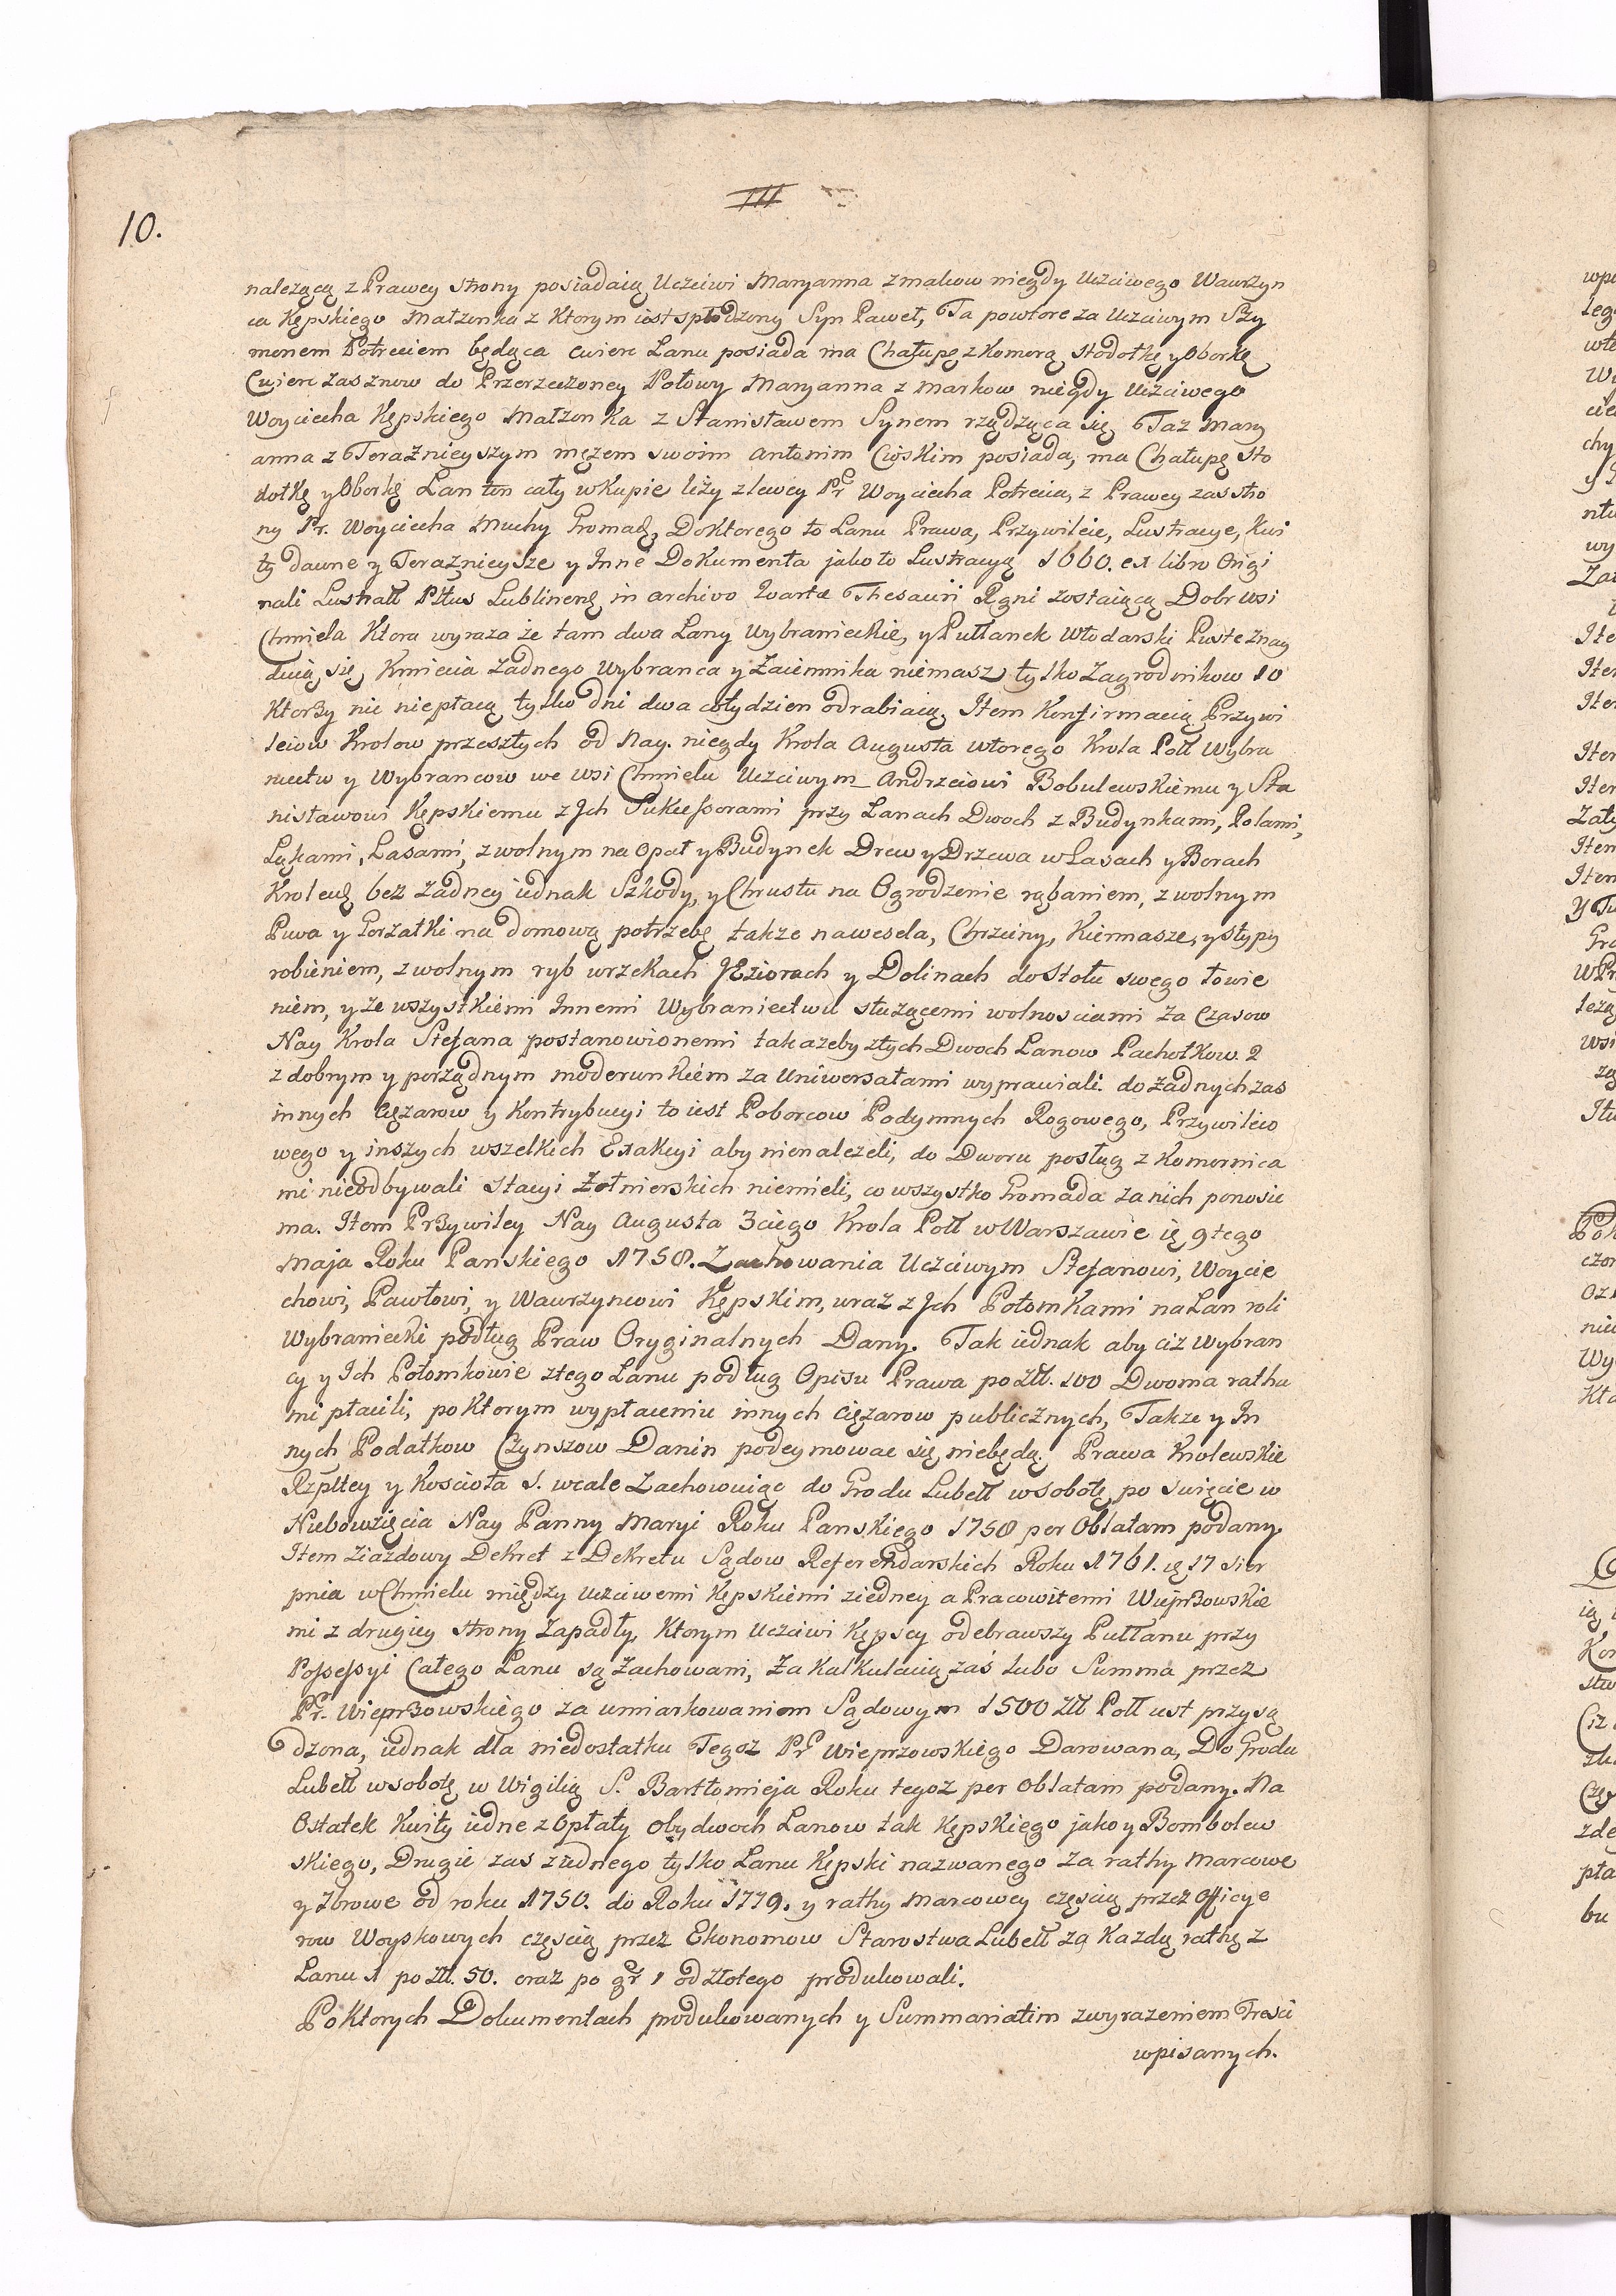 III
10.
nalezącą z Prawey strony posiadaią Uczciwi Maryanna z malcow niegdy Uczciwego Wawrzyn
ca Kępskiego Małzonka z Ktorym iest spłodzony Syn Paweł, Ta powtore za Uczciwym Szy
monem Potreciem będąca cwierc Lanu posiada ma Chałupę z Komorą Stodołkę y Oborkę
Cwierc zas znow do Przerzeczoney Połowy Maryanna z Markow niegdy Uczciwego
Woyciecha Kępskiego Małzonka z Stanisławem Synem rządząca się Taz Mary
anna z Teraznieyszym męzem swoim Antonim Cioskim posiada, ma Chałupę Sto
dołkę y Oborkę Lan ten cały w Kupie lezy z lewey Pr Woyciecha Potrecia, z Prawey zas stro
ny Pr. Woyciecha Muchy Gromad, Do Ktorego to Lanu Prawa, Przywileie, Lustracye, Kwi
ty dawne y Teraznieysze y Inne Dokumenta jako to Lustracyą 1660. ex libro Origi
nali Lustrall Pltus Lublinenę in archivo Quartæ Thesauri Regni zostaiącą Dobr wsi
Chmiela Ktora wyraza że tam dwa Lany Wybranieckie, y Pułłanek Włodarski Puste znay
duią się, Kmiecia zadnego Wybranca y Zaiemnika niemasz tylko Zagrodnikow 10
Ktorzy nic niepłacą tylko dni dwa co tydzien odrabiaią. Item Konfirmacią Przywi
leiow Krolow przeszłych od Nay. niegdy Krola Augusta wtorego Krola Poll Wybra
niectw y Wybrancow we wsi Chmielu Uczciwym Andrzeiowi Bobulewskiemu y Sta
nisławowi Kępskiemu z Ich Sukcessorami przy Lanach Dwoch z Budynkami, Polami,
Łąkami, Lasami, z wolnym na Opał y Budynek Drew y Drzewa w Lasach y Borach
Krolew bez zadney iednak Szkody, y Chrustu na Ogrodzenie rąbaniem, z wolnym
Piwa y Gorzałki na domową potrzebę takze na wesela, Chrzciny, Kiermasze, y stypy
robieniem, z wolnym ryb w rzekach JEziorach y Dolinach do Stołu swego łowie
niem, y ze wszystkiemi Innemi Wybraniectwu służącemi wolnosciami za Czasow
Nay Krola Stefana postanowionemi tak azeby z tych Dwoch Lanow Pachołkow 2
z dobrym y porządnym moderunkiem za Uniwersałami wyprawiali. do żadnych zas
innych Cięzarow y Kontrybucyi to iest Poborcow Podymnych Rogowego, Przywileio
wego y inszych wszelkich Exakcyi aby nienalezeli, do Dworu posług z Komornica
mi nieodbywali Stacyi Żołnierskich niemieli, co wszystko Gromada za nich ponosic
ma. Item Przywiley Nay Augusta 3ciego Krola Poll w Warszawie ię 9tego
Maja Roku Panskiego 1758. Zachowania Uczciwym Stefanowi, Woycie
chowi, Pawłowi, y Wawrzyncowi Kępskim, wraz z Ich Potomkami na Lan roli
Wybraniecki podług Praw Oryginalnych Dany. Tak iednak aby ciz Wybran
cy y Ich Potomkowie z tego Lanu podług Opisu Prawa po złł. 100 Dwoma ratha
mi płacili, po Ktorym wypłaceniu innych cięzarow publicznych, Takze y In
nych Podatkow Czynszow Danin podeymowac się niebędą. Prawa Krolewskie
Rzpltey y Koscioła S. wcale Zachowuiąc do Grodu Lubell w sobotę po swięcie w
Niebowzięcia Nay Panny Maryi Roku Panskiego 1758 per Oblatam podany.
Item Ziazdowy Dekret z Dekretu Sądow Referendarskich Roku 1761. ię 17 Sier
pnia w Chmielu między Uczciwemi Kępskiemi z iedney a Pracowitemi Wieprzowskie
mi z drugiey strony Zapadły, Ktorym Uczciwi Kępscy odebrawszy Pułłanu przy
Possessyi Całego Lanu są Zachowani, Za Kalkulacią zaś lubo Summa przez
Pr. Wieprzowskiego za umiarkowaniem Sądowym 1500 złł Poll iest przysą
dzona, iednak dla niedostatku Tegoz Pr Wieprzowskiego Darowana, Do Grodu
Lubell w sobotę w Wigilią S. Bartłomieja Roku tegoz per Oblatam podany. Na
Ostatek Kwity iedne z Opłaty obydwoch Lanow tak Kępskiego jako y Bombolew
skiego, Drugie zas z iednego tylko Lanu Kępski nazwanego za rathy Marcowe
y 7browe od roku 1750. do Roku 1779. y rathy Marcowey częscią przez Officye
row Woyskowych częscią przez Ekonomow Starostwa Lubell za Kazdą rathę z
Lanu 1 po złł. 50. oraz po gr 1 od złotego produkowali.
Po Ktorych Dokumentach produkowanych y Summariatim z wyrazeniem Tresci
wpisanych.